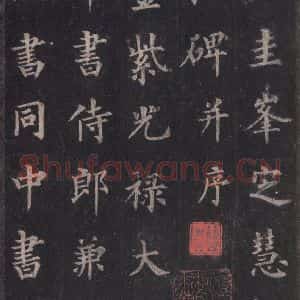 圭峯定慧
碑并序
紫光禄大
書侍郎兼
書同中書
Shufawang.CN